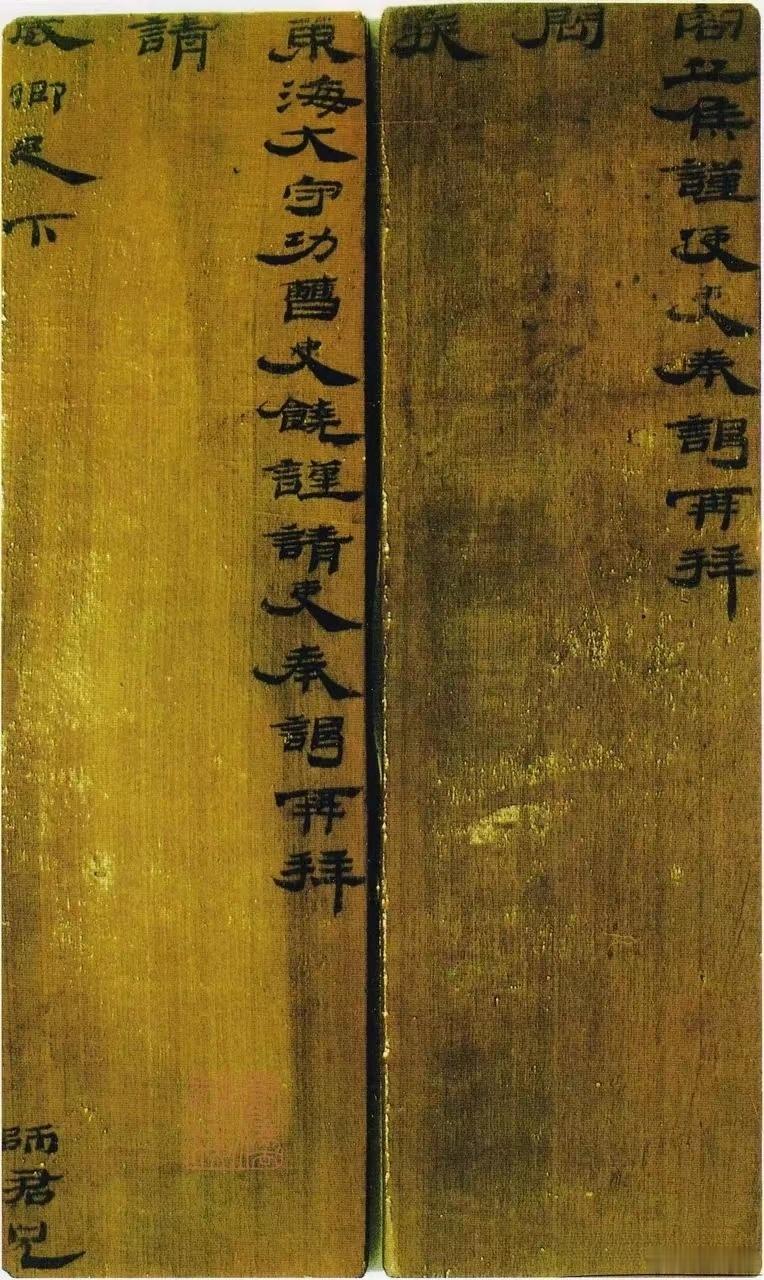 容丘侯謹使吏奉謁再拜
問
疾
東海大守功曹史饒謹請吏奉謁再拜
請
威卿足下
師君兄